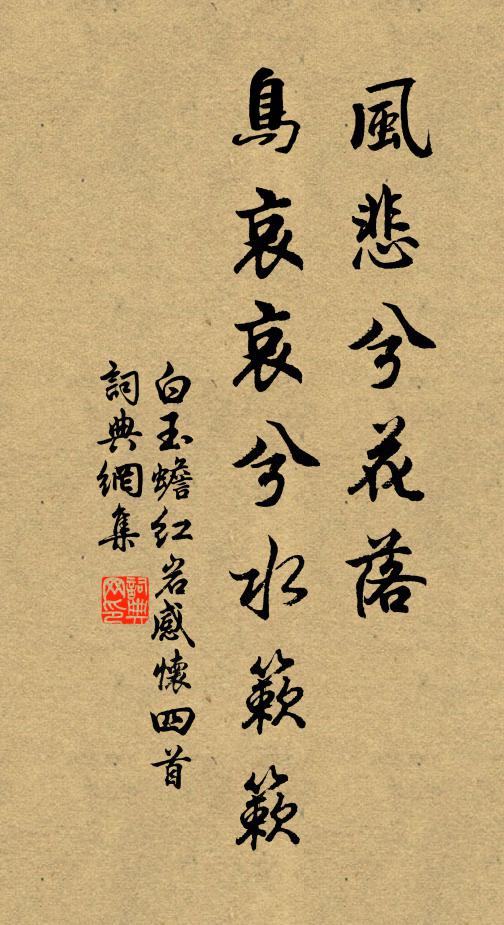 風悲兮花落
鳥哀哀兮水簌簌
白玉蟾紅岩感懷四首
詞典網集
詞典网印